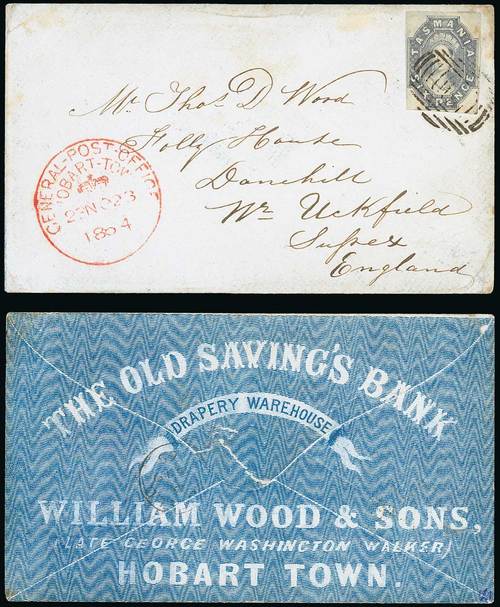 TASMANIA
SIXPENCE
Mr. Thos. D Wood
Holly House
Danehill
Nr. Uckfield
Sussex
England
GENERAL-POST-OFFICE
HOBART-TOWN
23
1864
THE OLD SAVING'S BANK
DRAPERY WAREHOUSE
WILLIAM WOOD & SONS,
(LATE GEORGE WASHINGTON WALKER)
HOBART TOWN.